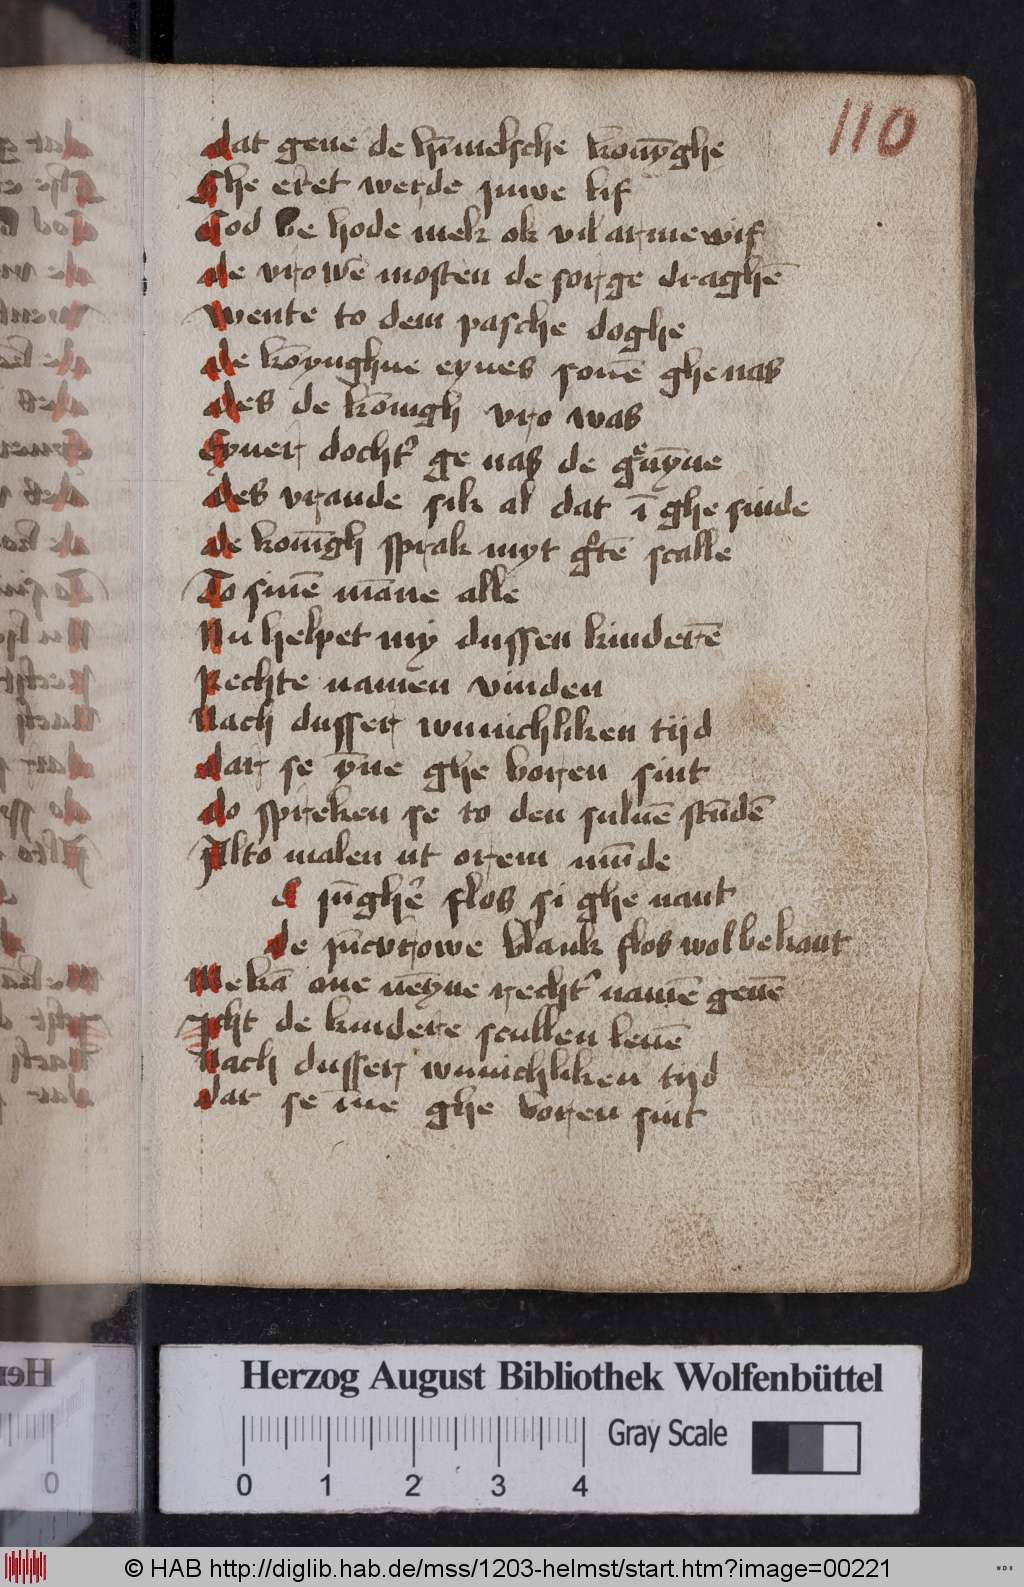 110
dat geue de hīmelsche konȳghe
Ghe eret werde juwe lif
God be hode mek ok vil arme wif
de vrowē mosten de sorge draghē
wente to dem pasche doghe
de kōnynghne eynes sonē ghe nas
des de kōnigh vro was
Eyner docht' ge nas de g'uȳne
des vraude sik al dat ī ghe sinde
de konīgh sprak myt g'tē scalle
To sinē māne alle
Nu helpet my dussen kinderē
Rechte namen vinden
Nach dusser wunichliken tijd
dar se ȳne ghe boren sint
do spreken se to den suluē stūdē
Alto malen ut orem mūde
d jūgher' flos si ghe nant
de jūcvrowe blank flos wol bekant
Me kā one nēyne recht' namē geuē
Icht de kindere scullen leuē
Nach dusser wunichliken tijd
dar se īne ghe boren sint
Herzog August Bibliothek Wolfenbüttel
Gray Scale
0 1 2 3 4
© HAB http://diglib.hab.de/mss/1203-helmst/start.htm?image=00221